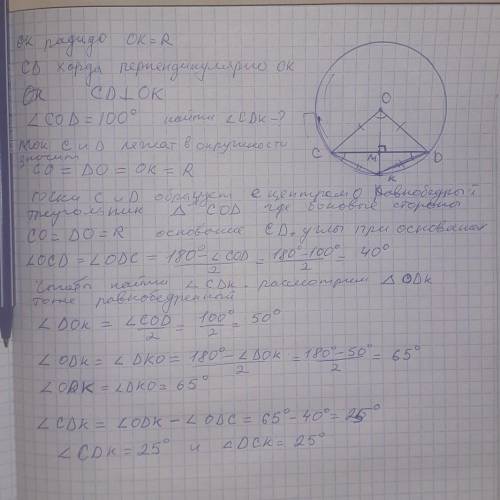 ОК радиус ОК = R
CD хорда перпендикулярно ОК
OK CD ⊥ OK
∠COD = 100° найти ∠CDK - ?
C и D лежат в окружности
значит
CO = DO = OK = R
точки C и D образует с центром О равнобедный
треугольник △ COD где боковые стороны
CO = DO = R основание CD, углы при основании
∠OCD = ∠ODC = (180° - ∠COD)/2 = (180° - 100°)/2 = 40°
Чтобы найти ∠CDK рассмотрим △ ODK
тоже равнобедренной
∠DOK = ∠COD/2 = 100°/2 = 50°
∠ODK = ∠DKO = (180° - ∠DOK)/2 = (180° - 50°)/2 = 65°
∠ODK = ∠DKO = 65°
∠CDK = ∠ODK - ∠ODC = 65° - 40° = 25°
∠CDK = 25° и ∠DCK = 25°
O
C
M
D
K